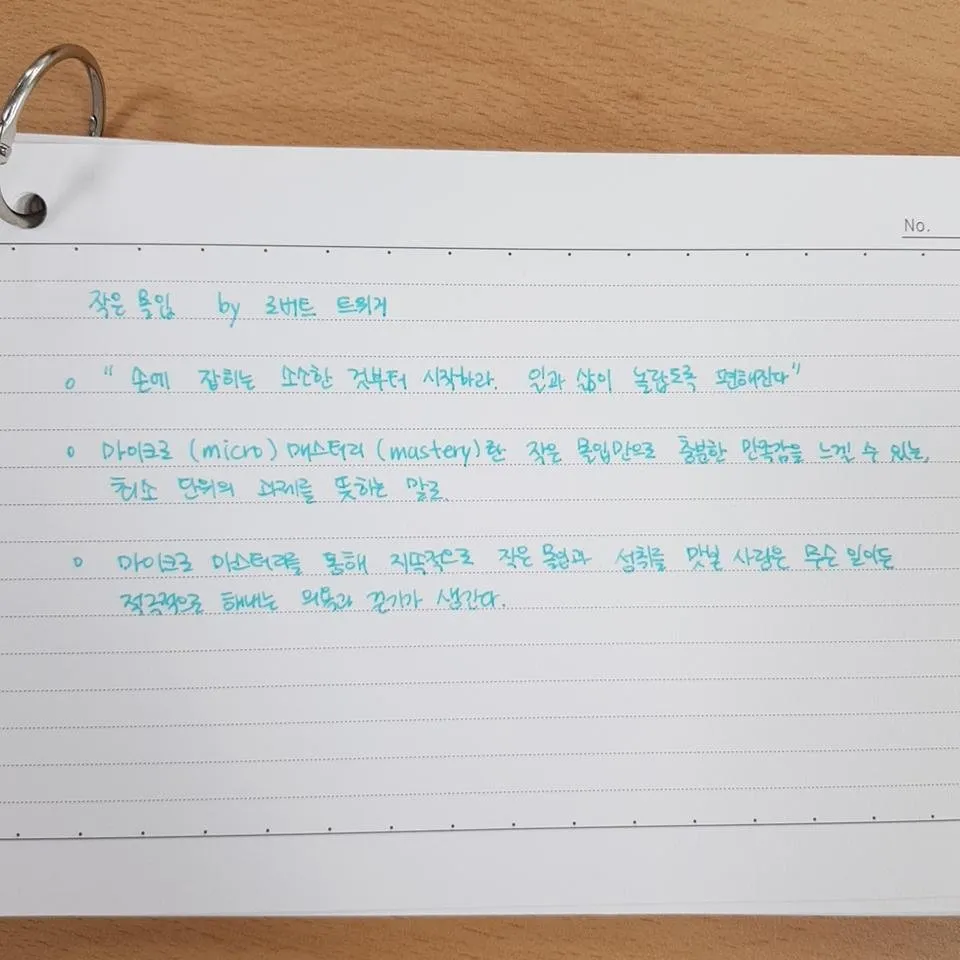 No.
작은 몰입 by 로버트 트위거
o " 손에 잡히는 소소한 것부터 시작하라. 일과 삶이 놀랍도록 편해진다"
o 마이크로 (micro) 매스터리 (mastery)란 작은 몰입만으로 충분한 만족감을 느낄 수 있는,
최소 단위의 과제를 뜻하는 말로.
o 마이크로 마스터리를 통해 지속적으로 작은 몰입과 성취를 맛본 사람은 무슨 일이든
적극적으로 해내는 의욕과 끈기가 생긴다.